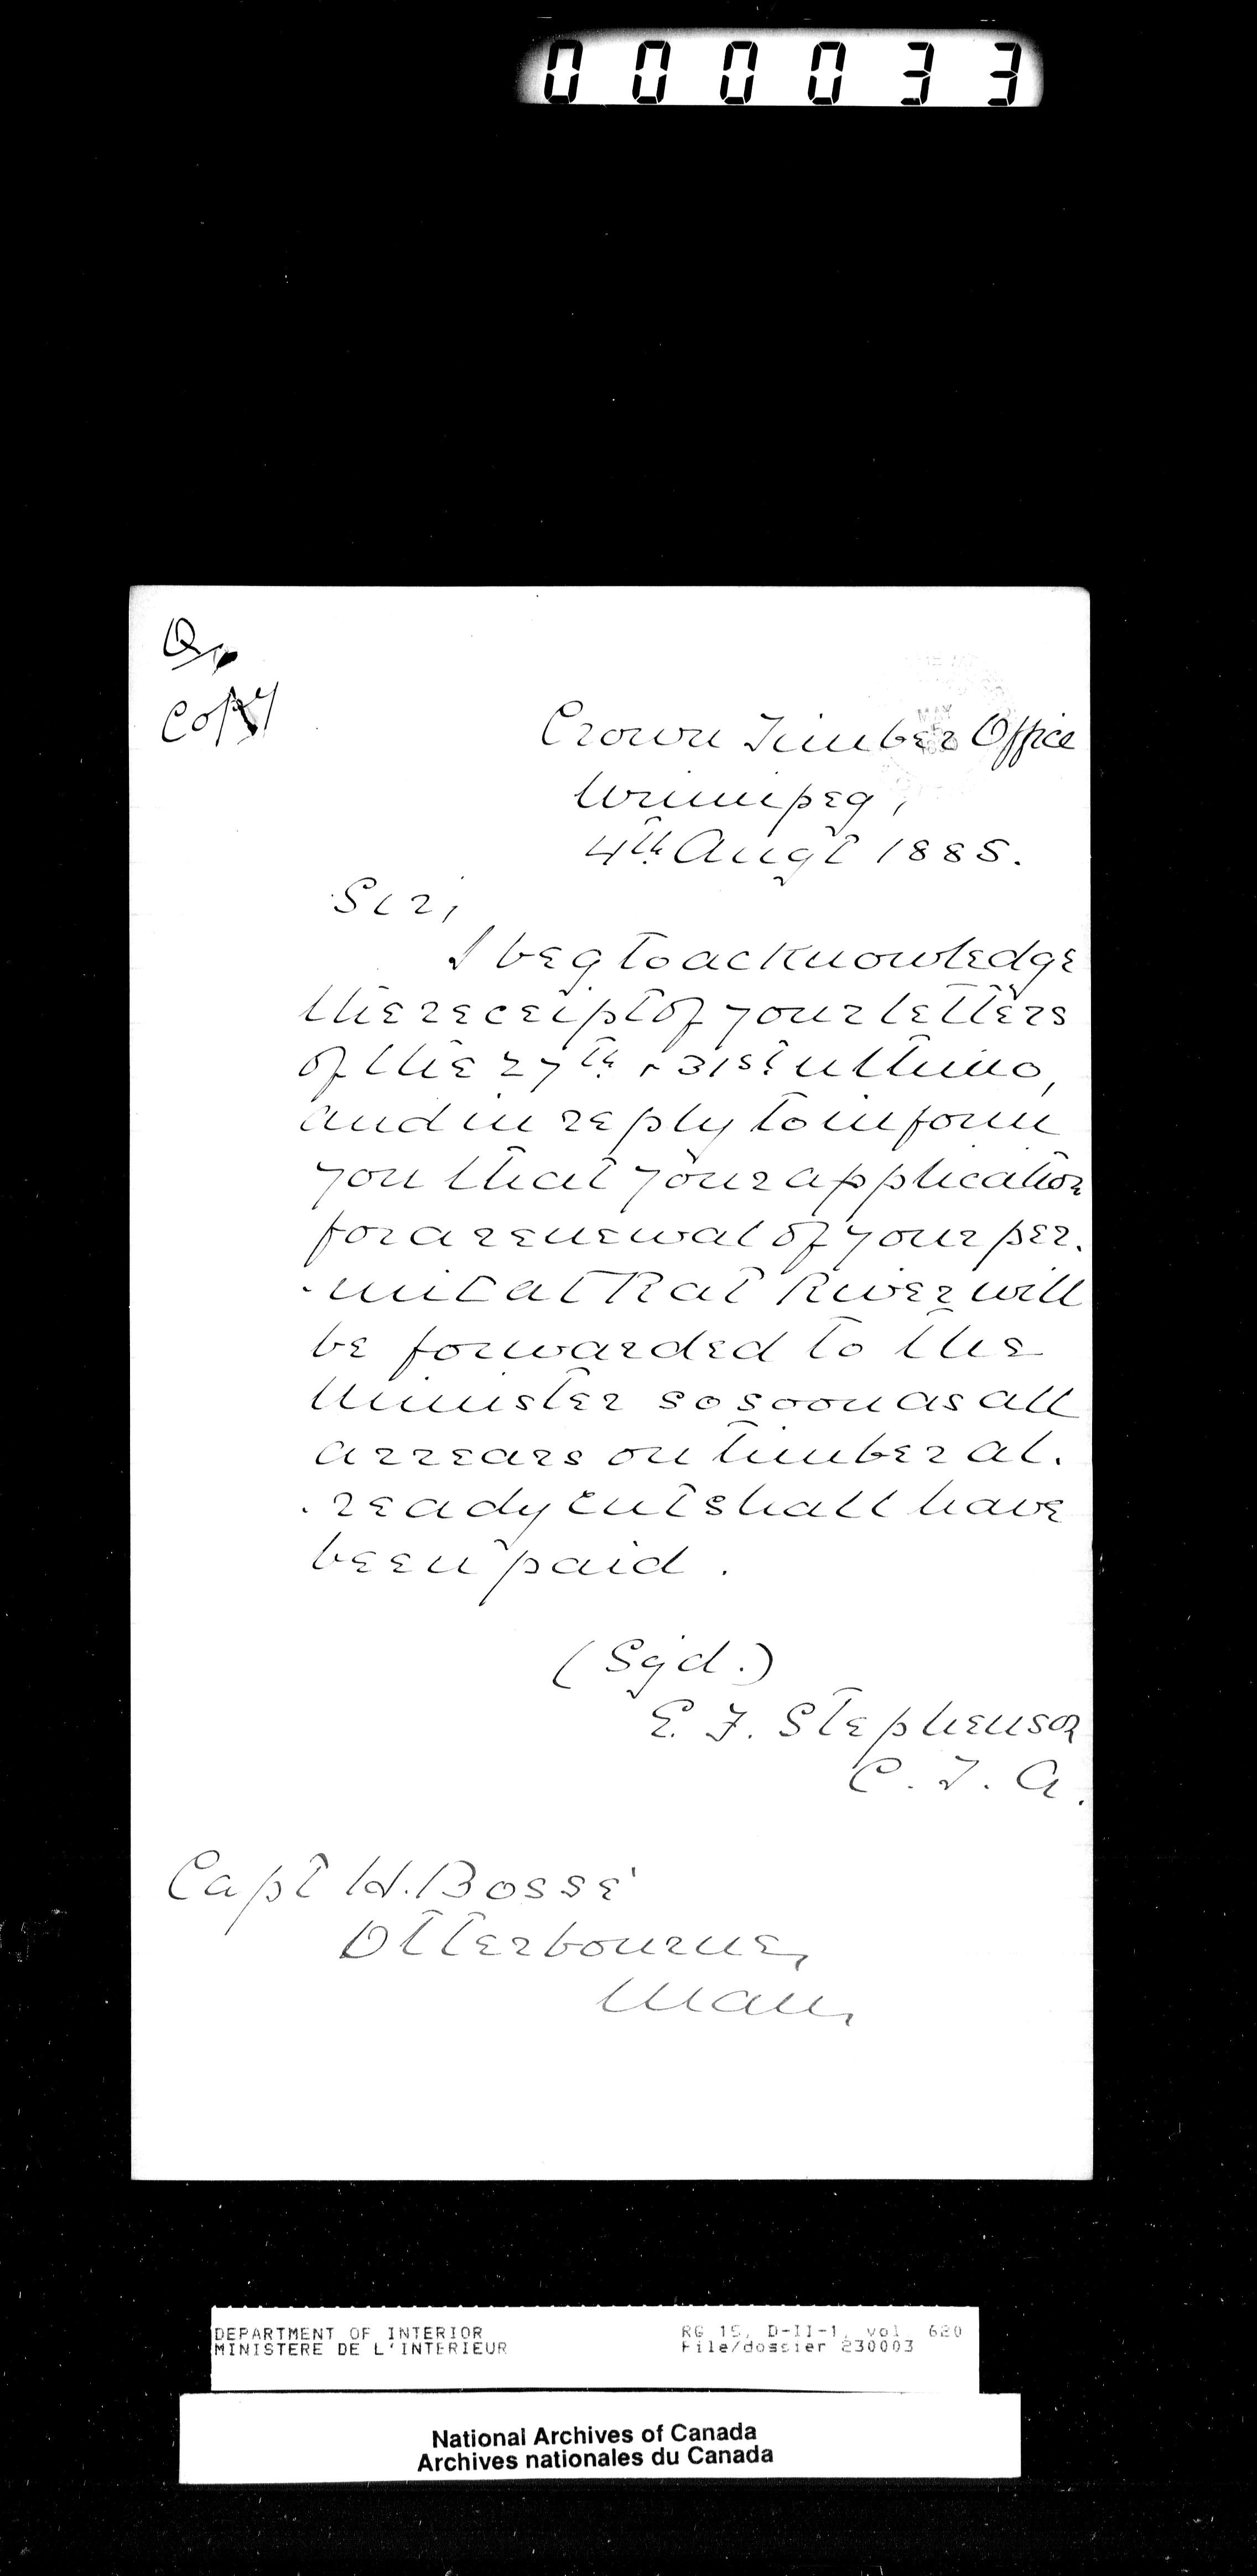 000033
Q
Copy
MAY
Crown Timber Office
Winnipeg,
4th Augt 1885.
Sir,
I beg to acknowledge
the receipt of your letters
of the 27th & 31st ultimo,
and in reply to inform
you that your application
for a renewal of your per-
-mit at Rat River will
be forwarded to the
Minister so soon as all
arrears on timber al-
-ready cut shall have
been paid.
(Sgd.)
E. F. Stephenson
C. T. A.
Capt H. Bossé
Otterbourne,
Man,
DEPARTMENT OF INTERIOR RG 15, D-II-1, vol. 620
MINISTERE DE L'INTERIEUR File/dossier 230003
National Archives of Canada
Archives nationales du Canada